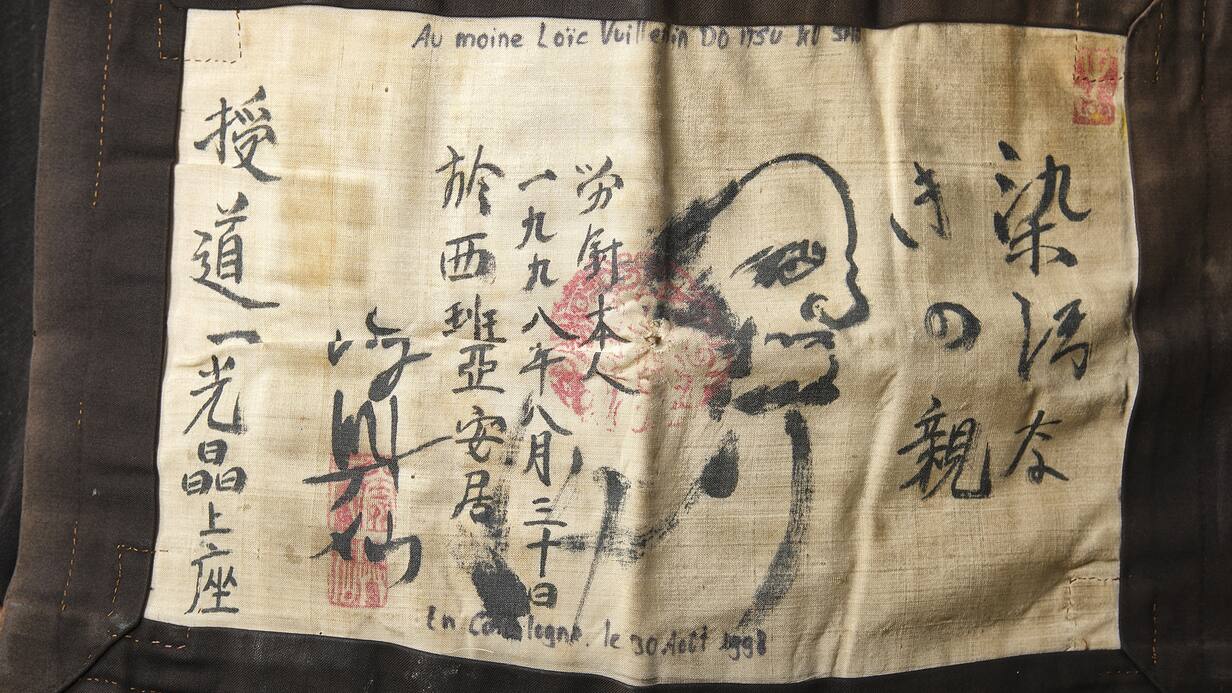 Au moine Loïc Vuillemin DO ITSU KO
染汚な
きの親
労針本人
一九九八年八月三十日
於西班亞安居
授道一光晶上座
En Catalogne, le 30 Août 1998